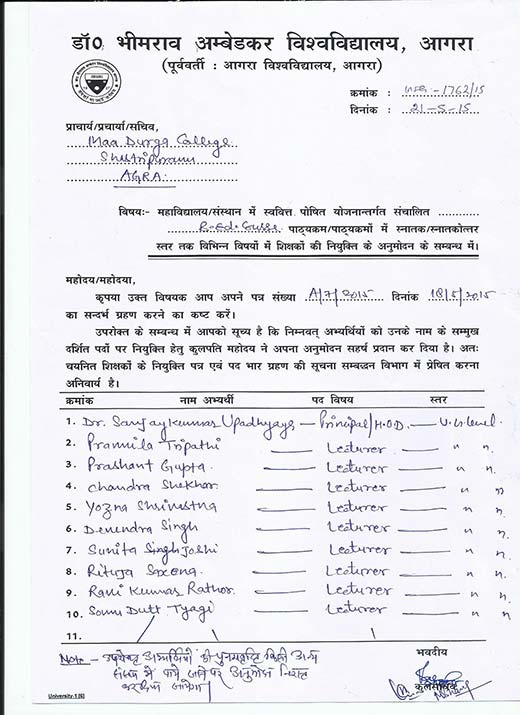 डॉ० भीमराव अम्बेडकर विश्वविद्यालय, आगरा
(पूर्ववर्ती : आगरा विश्वविद्यालय, आगरा)
क्रमांक : 1762/15
दिनांक : 21-5-15
प्राचार्य/प्रचार्या/सचिव,
Maa Durga College
AGRA
विषयः- महाविद्यालय/संस्थान में स्ववित्त पोषित योजनान्तर्गत संचालित
पाठ्यक्रम/पाठ्यकमों में स्नातक/स्नातकोत्तर
स्तर तक विभिन्न विषयों में शिक्षकों की नियुक्ति के अनुमोदन के सम्बन्ध में।
महोदय/महोदया,
कृपया उक्त विषयक आप अपने पत्र संख्या A/7/2015 दिनांक 18/5/2015
का सन्दर्भ ग्रहण करने का कष्ट करें।
उपरोक्त के सम्बन्ध में आपको सूच्य है कि निम्नवत् अभ्यर्थियों को उनके नाम के सम्मुख
दर्शित पदों पर नियुक्ति हेतु कुलपति महोदय ने अपना अनुमोदन सहर्ष प्रदान कर दिया है। अतः
चयनित शिक्षकों के नियुक्ति पत्र एवं पद भार ग्रहण की सूचना सम्बद्धन विभाग में प्रेषित करना
अनिवार्य है।
क्रमांक नाम अभ्यर्थी पद विषय स्तर
1. Dr. Sanjay Kumar Upadhyay — Principal/H.O.D. — U.G. level
2. Pramila Tripathi — Lecturer — " "
3. Prashant Gupta — Lecturer — " "
4. Chandra Shekhar — Lecturer — " "
5. Yozna Shrivastna — Lecturer — " "
6. Devendra Singh — Lecturer — " "
7. Sunita Singh Joshi — Lecturer — " "
8. Rituja Saxena — Lecturer — " "
9. Ravi Kumar Rathor — Lecturer — " "
10. Somu Dutt Tyagi — Lecturer — " "
11.
भवदीय
Note - उपरोक्त अभ्यर्थियों की पुनरावृत्ति किसी अन्य
संस्था में पाये जाने पर अनुमोदन निरस्त
जायेगा
कुलसचिव
University-1 [6]